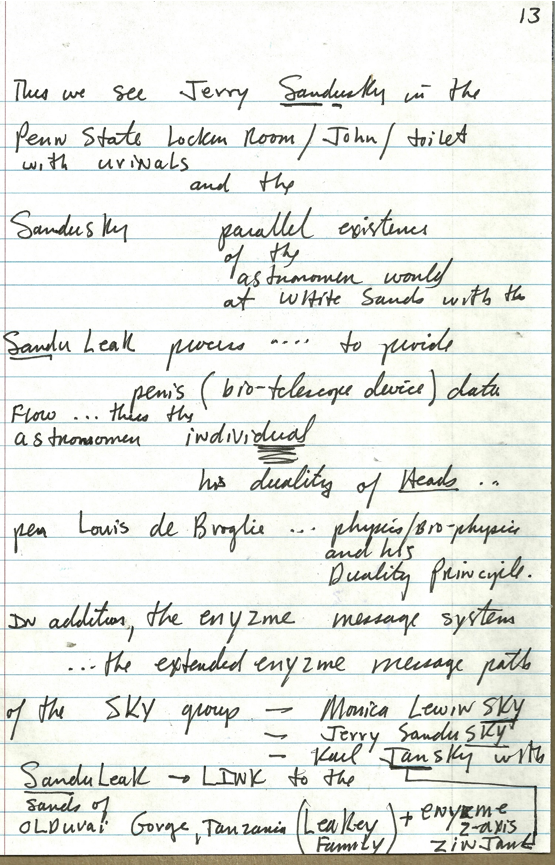 13
Thus we see Jerry Sandusky in the
Penn State Locker Room / John / toilet
with urinals
and the
Sandusky parallel existence
of the
astronomer would
at White Sands with the
Sandu Leak process .... to provide
penis (bio-telescope device) data
Flow ... thus the
astronomer individual
his duality of Heads ..
per Louis de Broglie ... physics/Bio-physics
and his
Duality Principle.
In addition, the enyzme message system
... the extended enyzme message path
of the SKY group — Monica LewinSKY
— Jerry SanduSKY
— Karl JanSKY with
SanduLeak → LINK to the
sands of
OLDuvai Gorge, Tanzania (Leakey Family) + enyzme
z-axis
zinJant